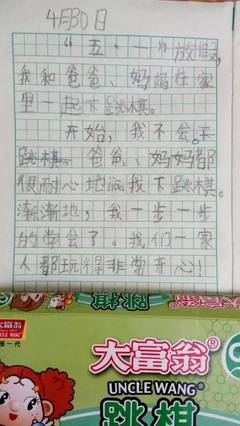 4月30日
“五·一”放假,
我和爸爸、妈妈在家
里一起下跳棋。
开始,我不会。
跳棋 爸爸、妈妈都
很耐心地 我下跳棋。
渐渐地,我一步一步
的学会了。我们一家
人都玩得非常开心!
跳棋
大富翁
大富翁®
UNCLE WANG®
跳棋